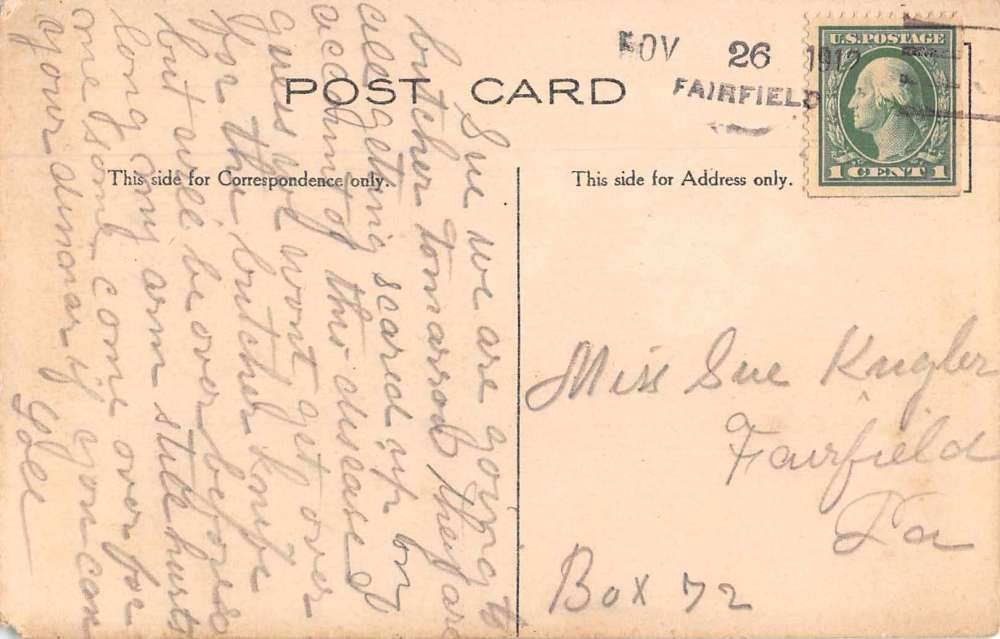 NOV 26 1912
FAIRFIELD
U.S. POSTAGE
1 CENT 1
POST CARD
This side for Correspondence only.
This side for Address only.
Sue we are going to
butcher tomarrow they are
all getting scared up on
account of this disease I
guess we wont get over
for the butcher knife
but will be over before so
long my arm still hurts
me some come over for
your dinnar if you can
Miss Sue Kugler
Fairfield
Pa
Box 72